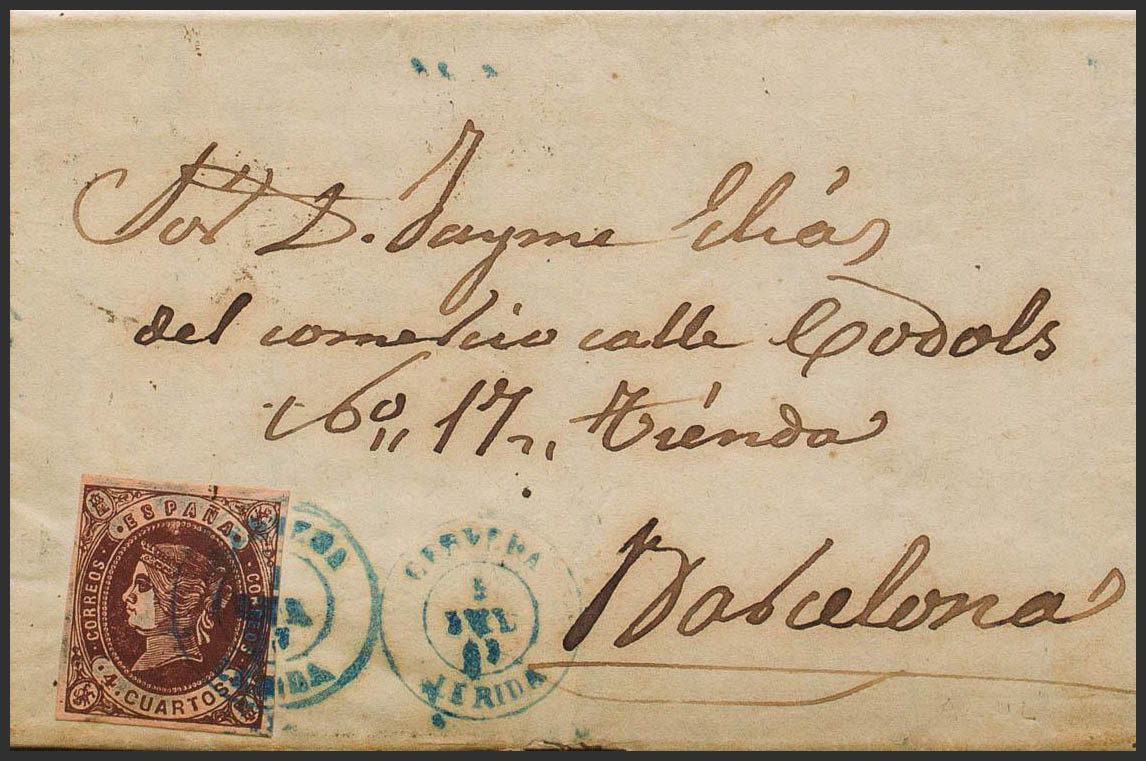 Sor D. Jayme Eliás
del comercio calle Codols
No 17, tiénda
Barcelona
ESPAÑA
CORREOS
CORREOS
4 CUARTOS
CERVERA
JUL
LERIDA